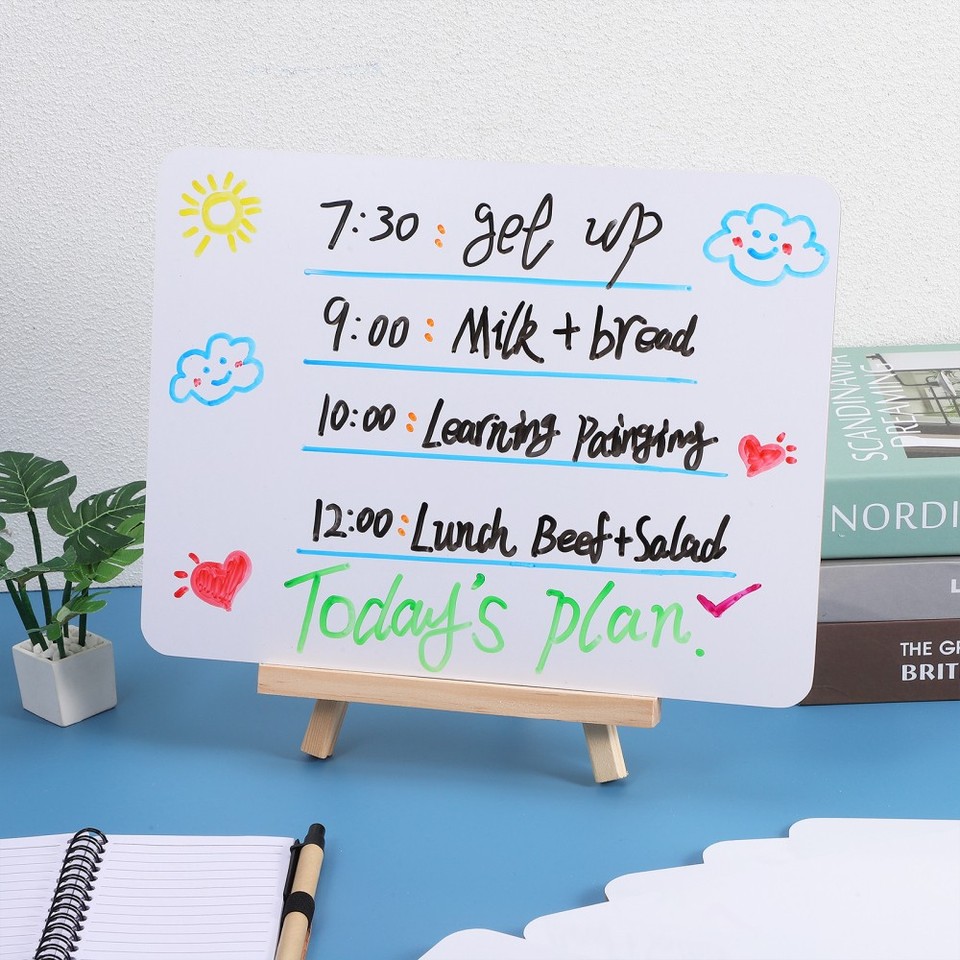 7:30 : get up
9:00 : Milk + bread
10:00 : Learning Painging
12:00 : Lunch Beef + Salad
Today's plan.
SCANDINAVIA
DREAMING
NORDI
L
THE GR
BRIT